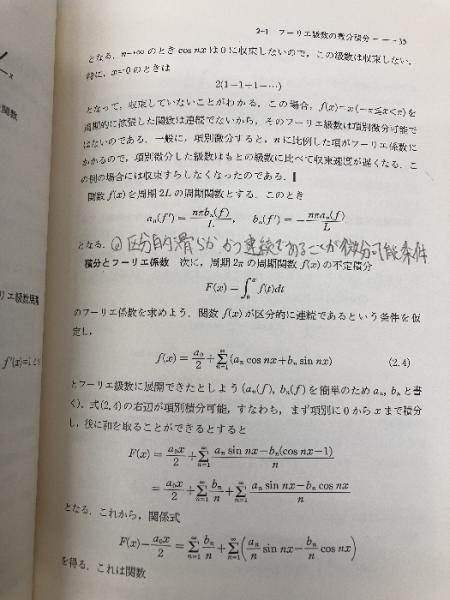 2-1 フーリエ級数の微分積分 --- 35
となる．n→∞のとき cos nx は0に収束しないので，この級数は収束しない．
特に，x=0のときは
2(1-1+1-…)
となって，収束していないことがわかる．この場合，f(x)=x(-π≦x<π)を
周期的に拡張した関数は連続でないから，そのフーリエ級数は項別微分可能で
はないのである．一般に，項別微分すると，nに比例した項がフーリエ係数に
かかるので，項別微分した級数はもとの級数に比べて収束速度が遅くなる．こ
の例の場合には収束すらしなくなったのである．▌
関数 f(x)を周期 2L の周期関数とする．このとき
aₙ(f′) = nπbₙ(f)/L, bₙ(f′) = -nπaₙ(f)/L
となる．
区分的滑らかかつ連続であることが微分可能条件
積分とフーリエ係数 次に，周期 2π の周期関数 f(x)の不定積分
F(x) = ∫₀ˣ f(t)dt
のフーリエ係数を求めよう．関数 f(x)が区分的に連続であるという条件を仮
定し，
f(x) = a₀/2 + Σₙ₌₁^∞ (aₙ cos nx + bₙ sin nx) (2.4)
とフーリエ級数に展開できたとしよう(aₙ(f), bₙ(f)を簡単のため aₙ, bₙ と書
く)．式(2.4)の右辺が項別積分可能，すなわち，まず項別に0からxまで積分
し，後に和を取ることができるとすると
F(x) = a₀x/2 + Σₙ₌₁^∞ (aₙ sin nx - bₙ(cos nx - 1))/n
= a₀x/2 + Σₙ₌₁^∞ bₙ/n + Σₙ₌₁^∞ (aₙ sin nx - bₙ cos nx)/n
となる．これから，関係式
F(x) - a₀x/2 = Σₙ₌₁^∞ bₙ/n + Σₙ₌₁^∞ (aₙ/n sin nx - bₙ/n cos nx)
を得る．これは関数
x
関数
リエ級数展
f′(x)=1